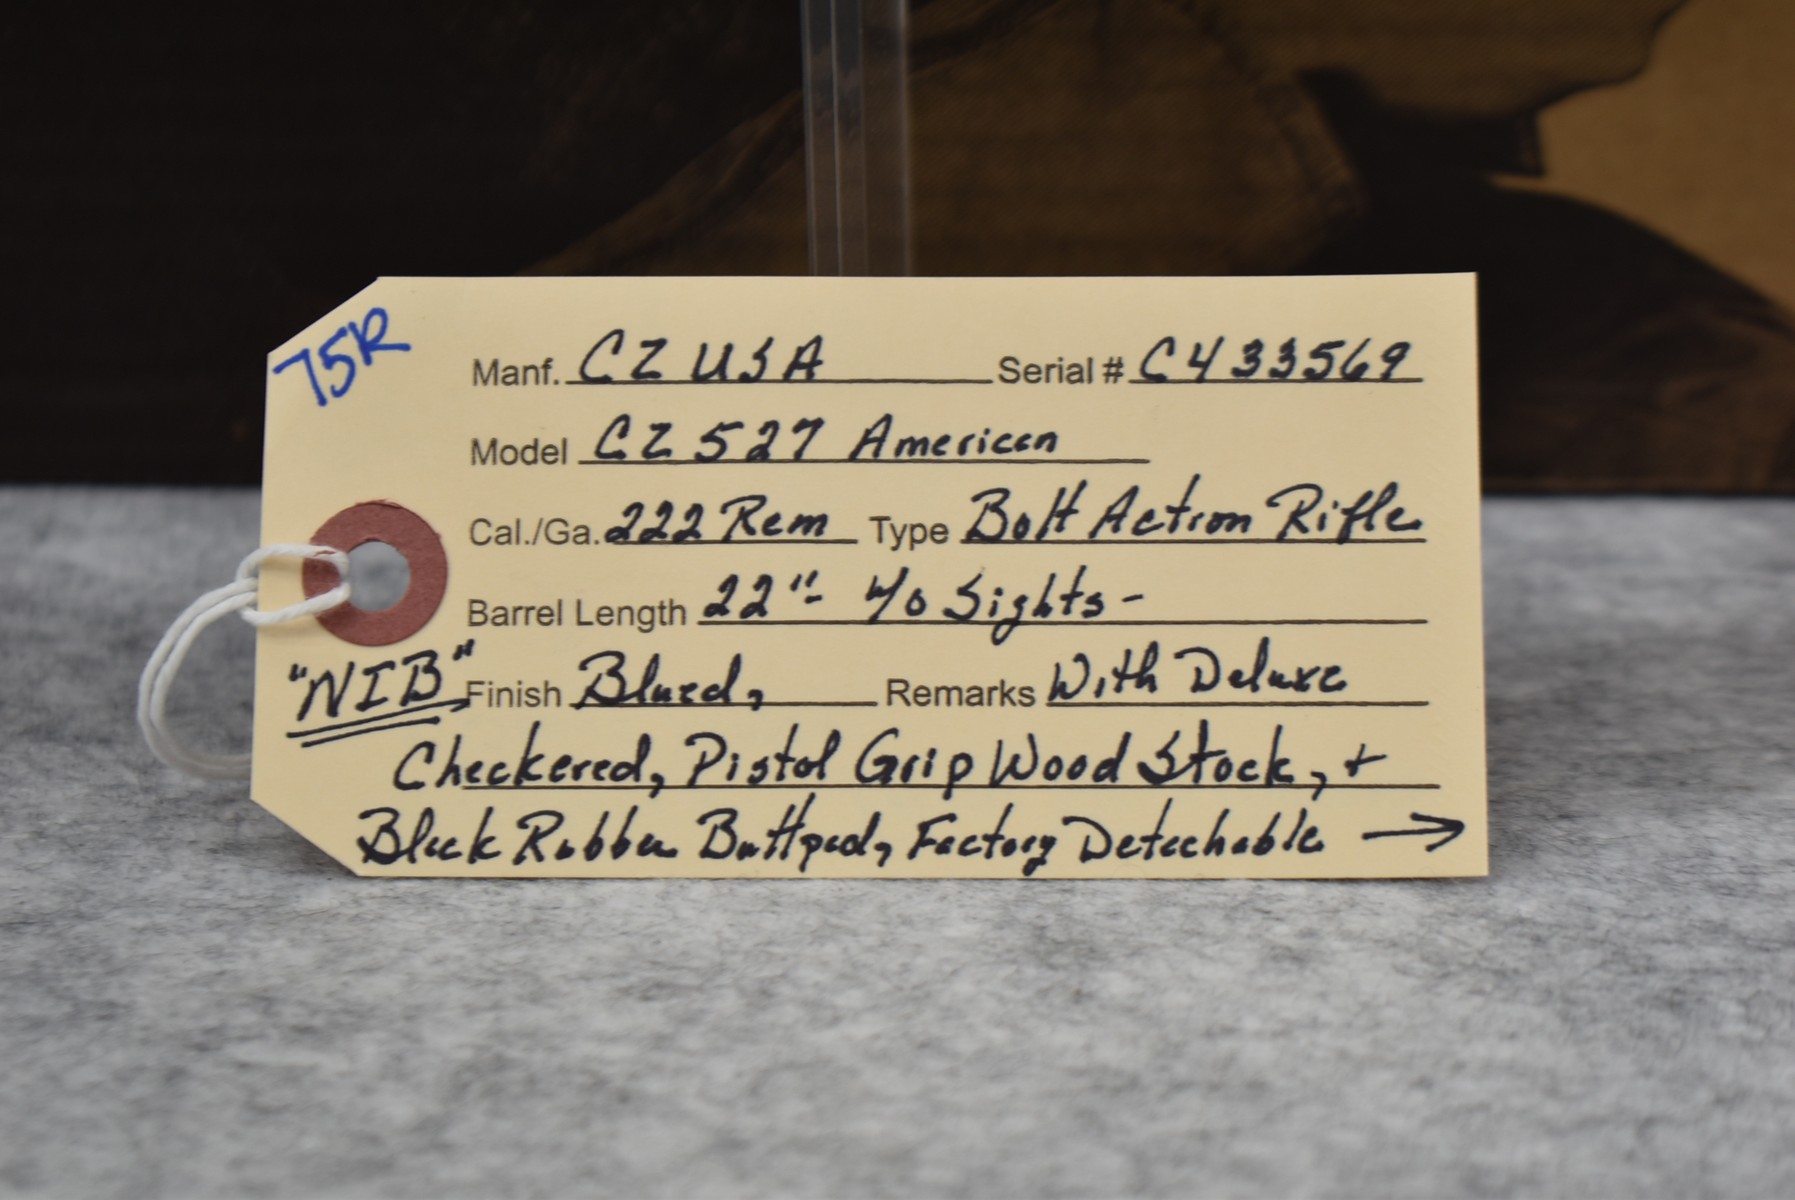 75R
Manf. CZ USA Serial # C433569
Model CZ 527 American
Cal./Ga. 222 Rem Type Bolt Action Rifle
Barrel Length 22"- w/o Sights -
"NIB" Finish Blued, Remarks With Deluxe
Checkered, Pistol Grip Wood Stock, +
Black Rubber Buttpad, Factory Detachable →